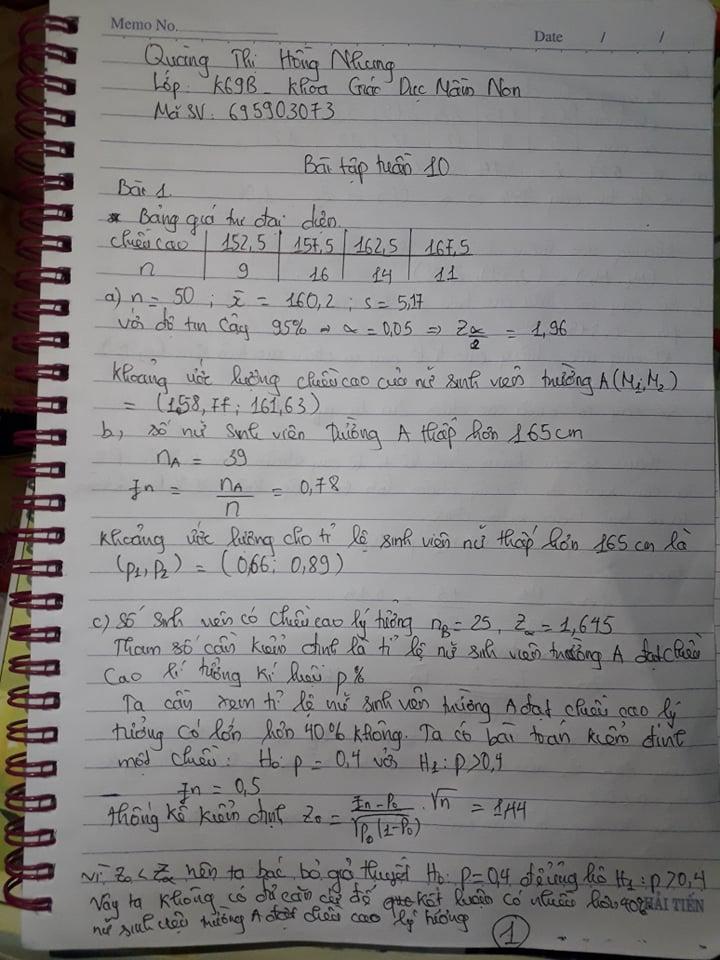 Memo No.
Date / /
Quàng Thị Hồng Nhung
Lớp: K69B - Khoa Giáo Dục Mầm Non
Mã SV: 695903073
Bài tập tuần 10
Bài 1
* Bảng giá trị đại diện
chiều cao | 152,5 | 157,5 | 162,5 | 167,5
n | 9 | 16 | 14 | 11
a) n = 50 ; x̄ = 160,2 ; s = 5,17
với độ tin cậy 95% → α = 0,05 ⇒ Zα/2 = 1,96
Khoảng ước lượng chiều cao của nữ sinh viên trường A (M1, M2)
= (158,77; 161,63)
b, số nữ sinh viên trường A thấp hơn 165cm
nA = 39
fn = nA/n = 0,78
Khoảng ước lượng cho tỉ lệ sinh viên nữ thấp hơn 165 cm là
(p1, p2) = (0,66; 0,89)
c) Số sinh viên có chiều cao lý tưởng nB = 25, Zα = 1,645
Tham số cần kiểm định là tỉ lệ nữ sinh viên trường A đạt chiều
cao lí tưởng kí hiệu p%
Ta cần xem tỉ lệ nữ sinh viên trường A đạt chiều cao lý
tưởng có lớn hơn 40% không. Ta có bài toán kiểm định
một chiều: H0: p = 0,4 với H1: p > 0,4
fn = 0,5
thống kê kiểm định Z0 = (fn - P0)/√(P0(1-P0)) . √n = 1,44
Vì Z0 < Zα nên ta bác bỏ giả thuyết H0: p = 0,4 để ủng hộ H1: p > 0,4
Vậy ta không có đủ căn cứ để kết luận có nhiều hơn 40%
HẢI TIẾN
nữ sinh viên trường A đạt chiều cao lý tưởng
1